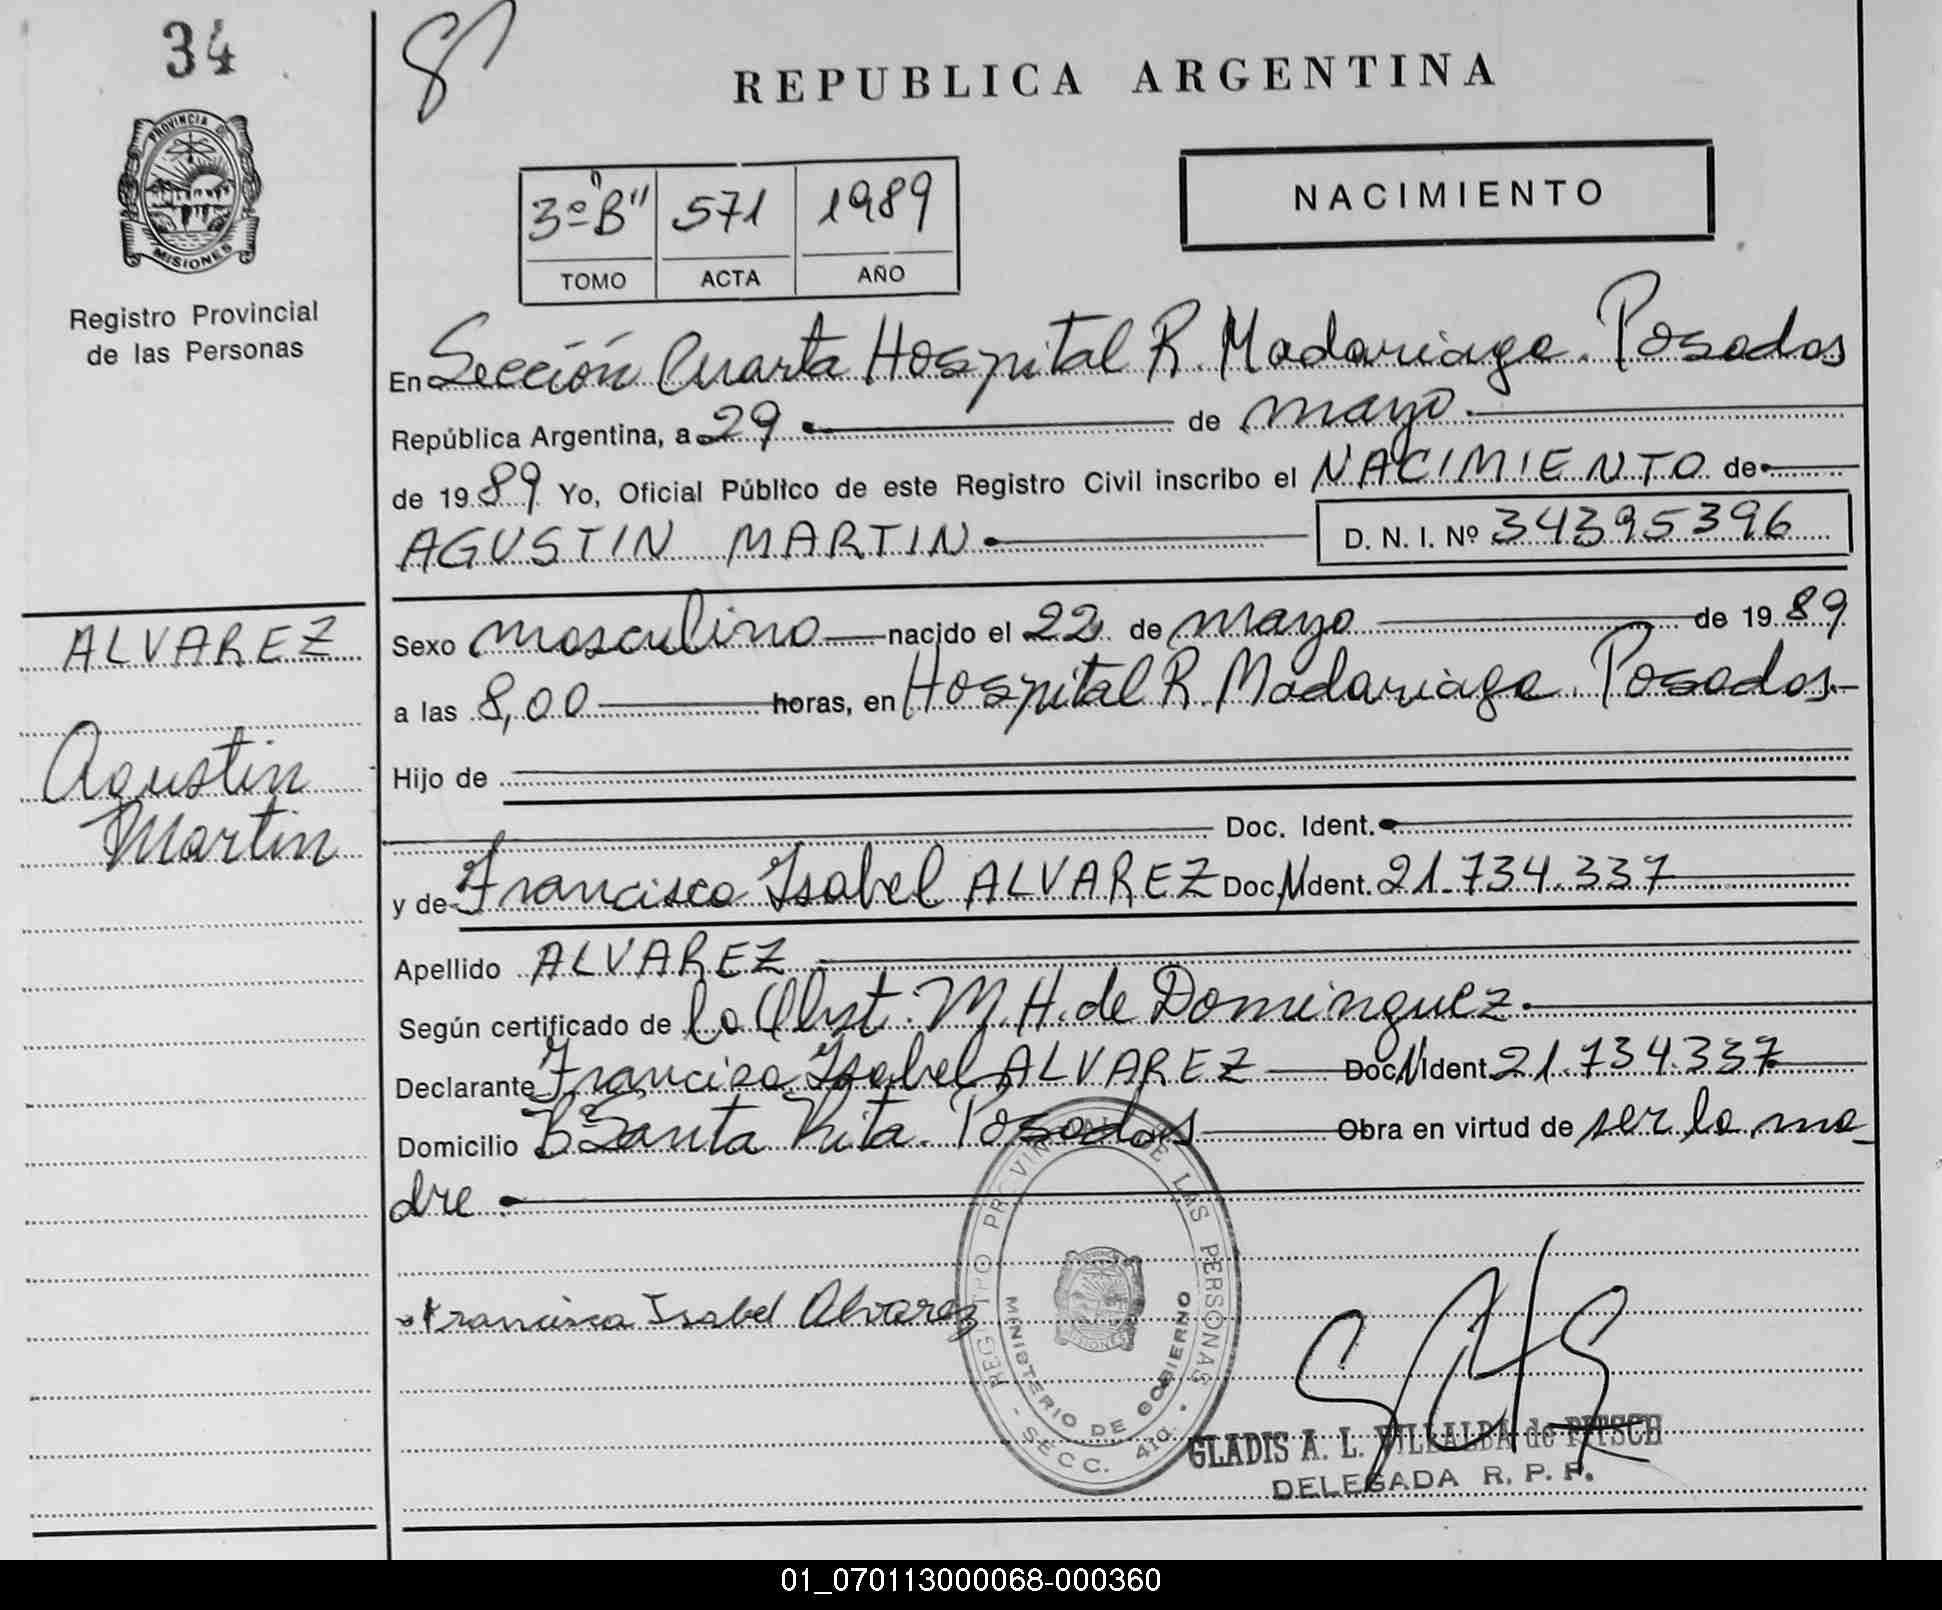 34
REPUBLICA ARGENTINA
PROVINCIA DE
MISIONES
3º "B" 571 1989
TOMO ACTA AÑO
NACIMIENTO
Registro Provincial
de las Personas
En Sección Cuarta Hospital R. Madariaga. Posadas
República Argentina, a 29 de mayo.
de 1989 Yo, Oficial Público de este Registro Civil inscribo el NACIMIENTO de
AGUSTIN MARTIN D. N. I. Nº 34395396
ALVAREZ
Agustin
Martin
Sexo masculino nacido el 22 de mayo de 1989
a las 8,00 horas, en Hospital R. Madariaga. Posadas.
Hijo de
Doc. Ident.
y de Francisca Isabel ALVAREZ Doc. N Ident. 21.734.337
Apellido ALVAREZ
Según certificado de la Obst. M. H. de Dominguez.
Declarante Francisca Isabel ALVAREZ Doc. N Ident. 21.734.337
Domicilio Bº Santa Rita. Posadas Obra en virtud de ser la ma-
dre.
Francisca Isabel Alvarez
REGISTRO PROVINCIAL DE LAS PERSONAS
MINISTERIO DE GOBIERNO
- SECC. 4ta. -
GLADIS A. L. VILLALBA de PITSCH
DELEGADA R. P. P.
01_070113000068-000360